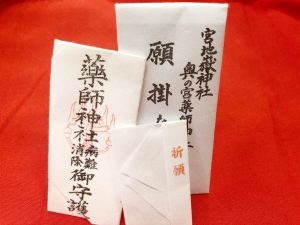 宮地嶽神社
奥の宮薬師神社
願掛
藥師神社
病難消除
御守護
祈願